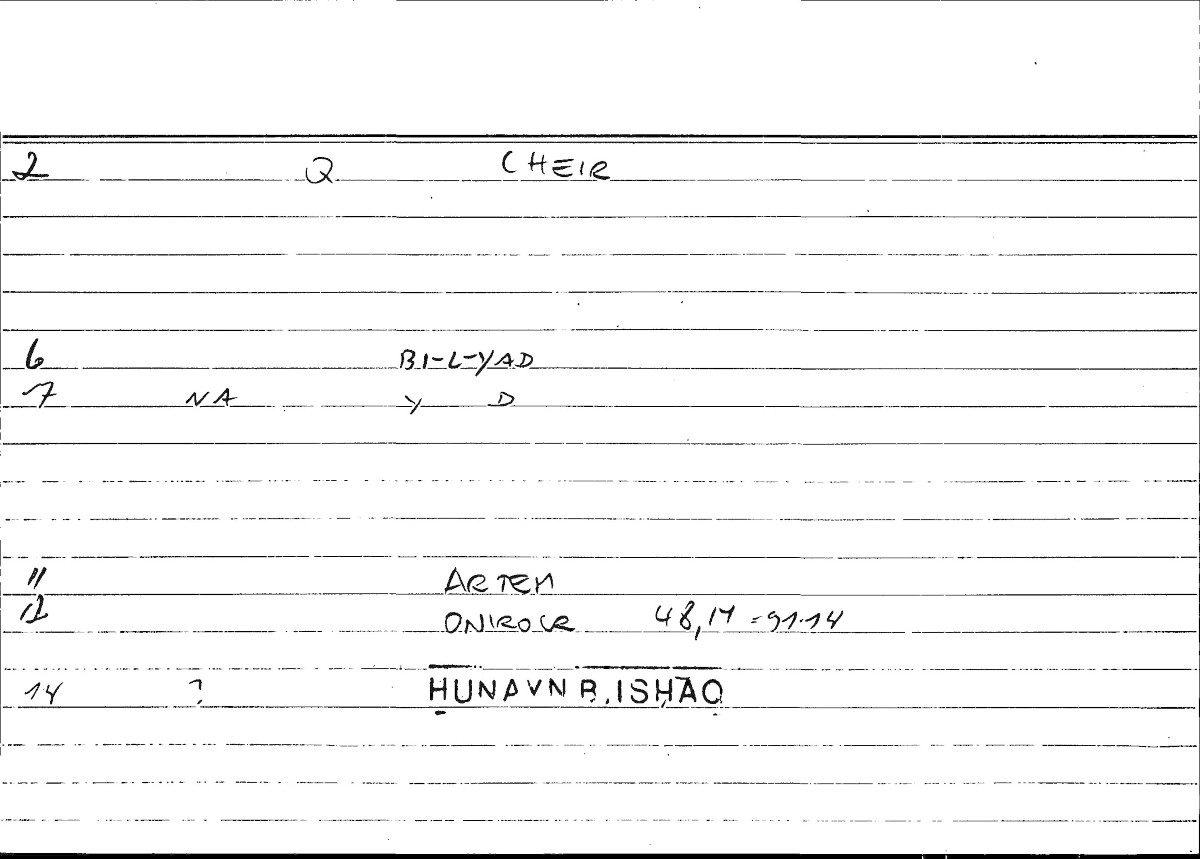 2 Q CHEIR
6 BI-L-YAD
7 NA Y D
11 ARTEM
12 ONIROCR 48,14 = 91.14
14 ? ḤUNAYN B. ISḤĀQ